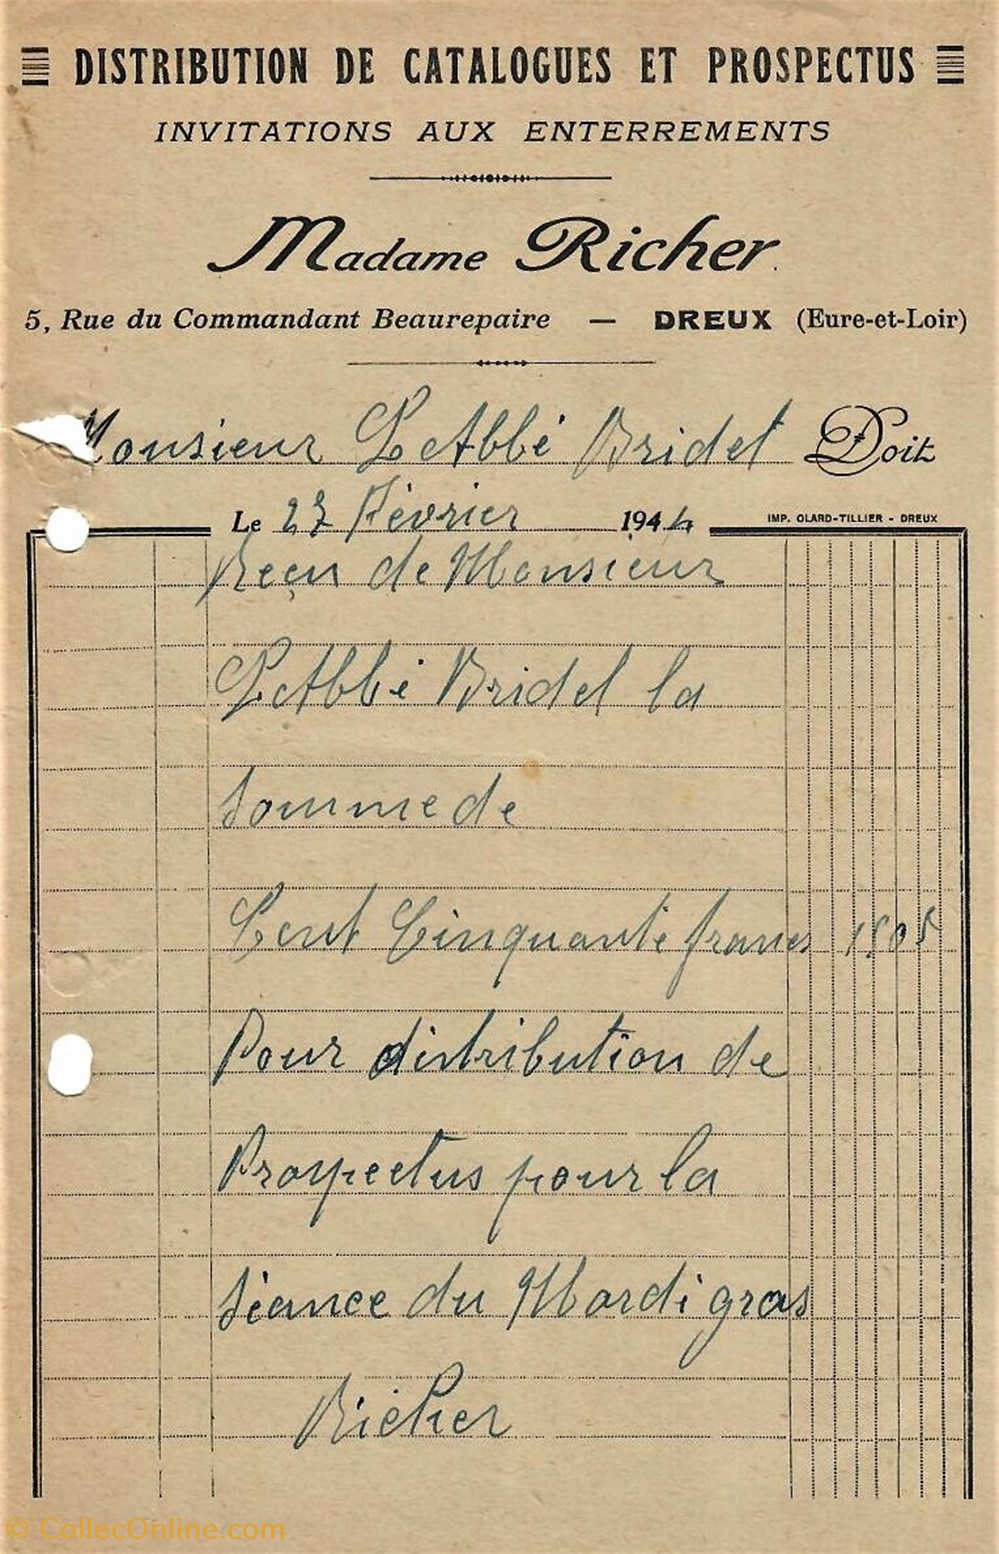 DISTRIBUTION DE CATALOGUES ET PROSPECTUS
INVITATIONS AUX ENTERREMENTS
Madame Richer
5, Rue du Commandant Beaurepaire — DREUX (Eure-et-Loir)
Monsieur L'Abbé Bridel Doit
Le 27 Février 1944
IMP. OLARD-TILLIER - DREUX
Reçu de Monsieur
L'Abbé Bridel la
Somme de
Cent Cinquante francs
Pour distribution de
Prospectus pour la
Séance du Mardi gras
Richer
© CollecOnline.com